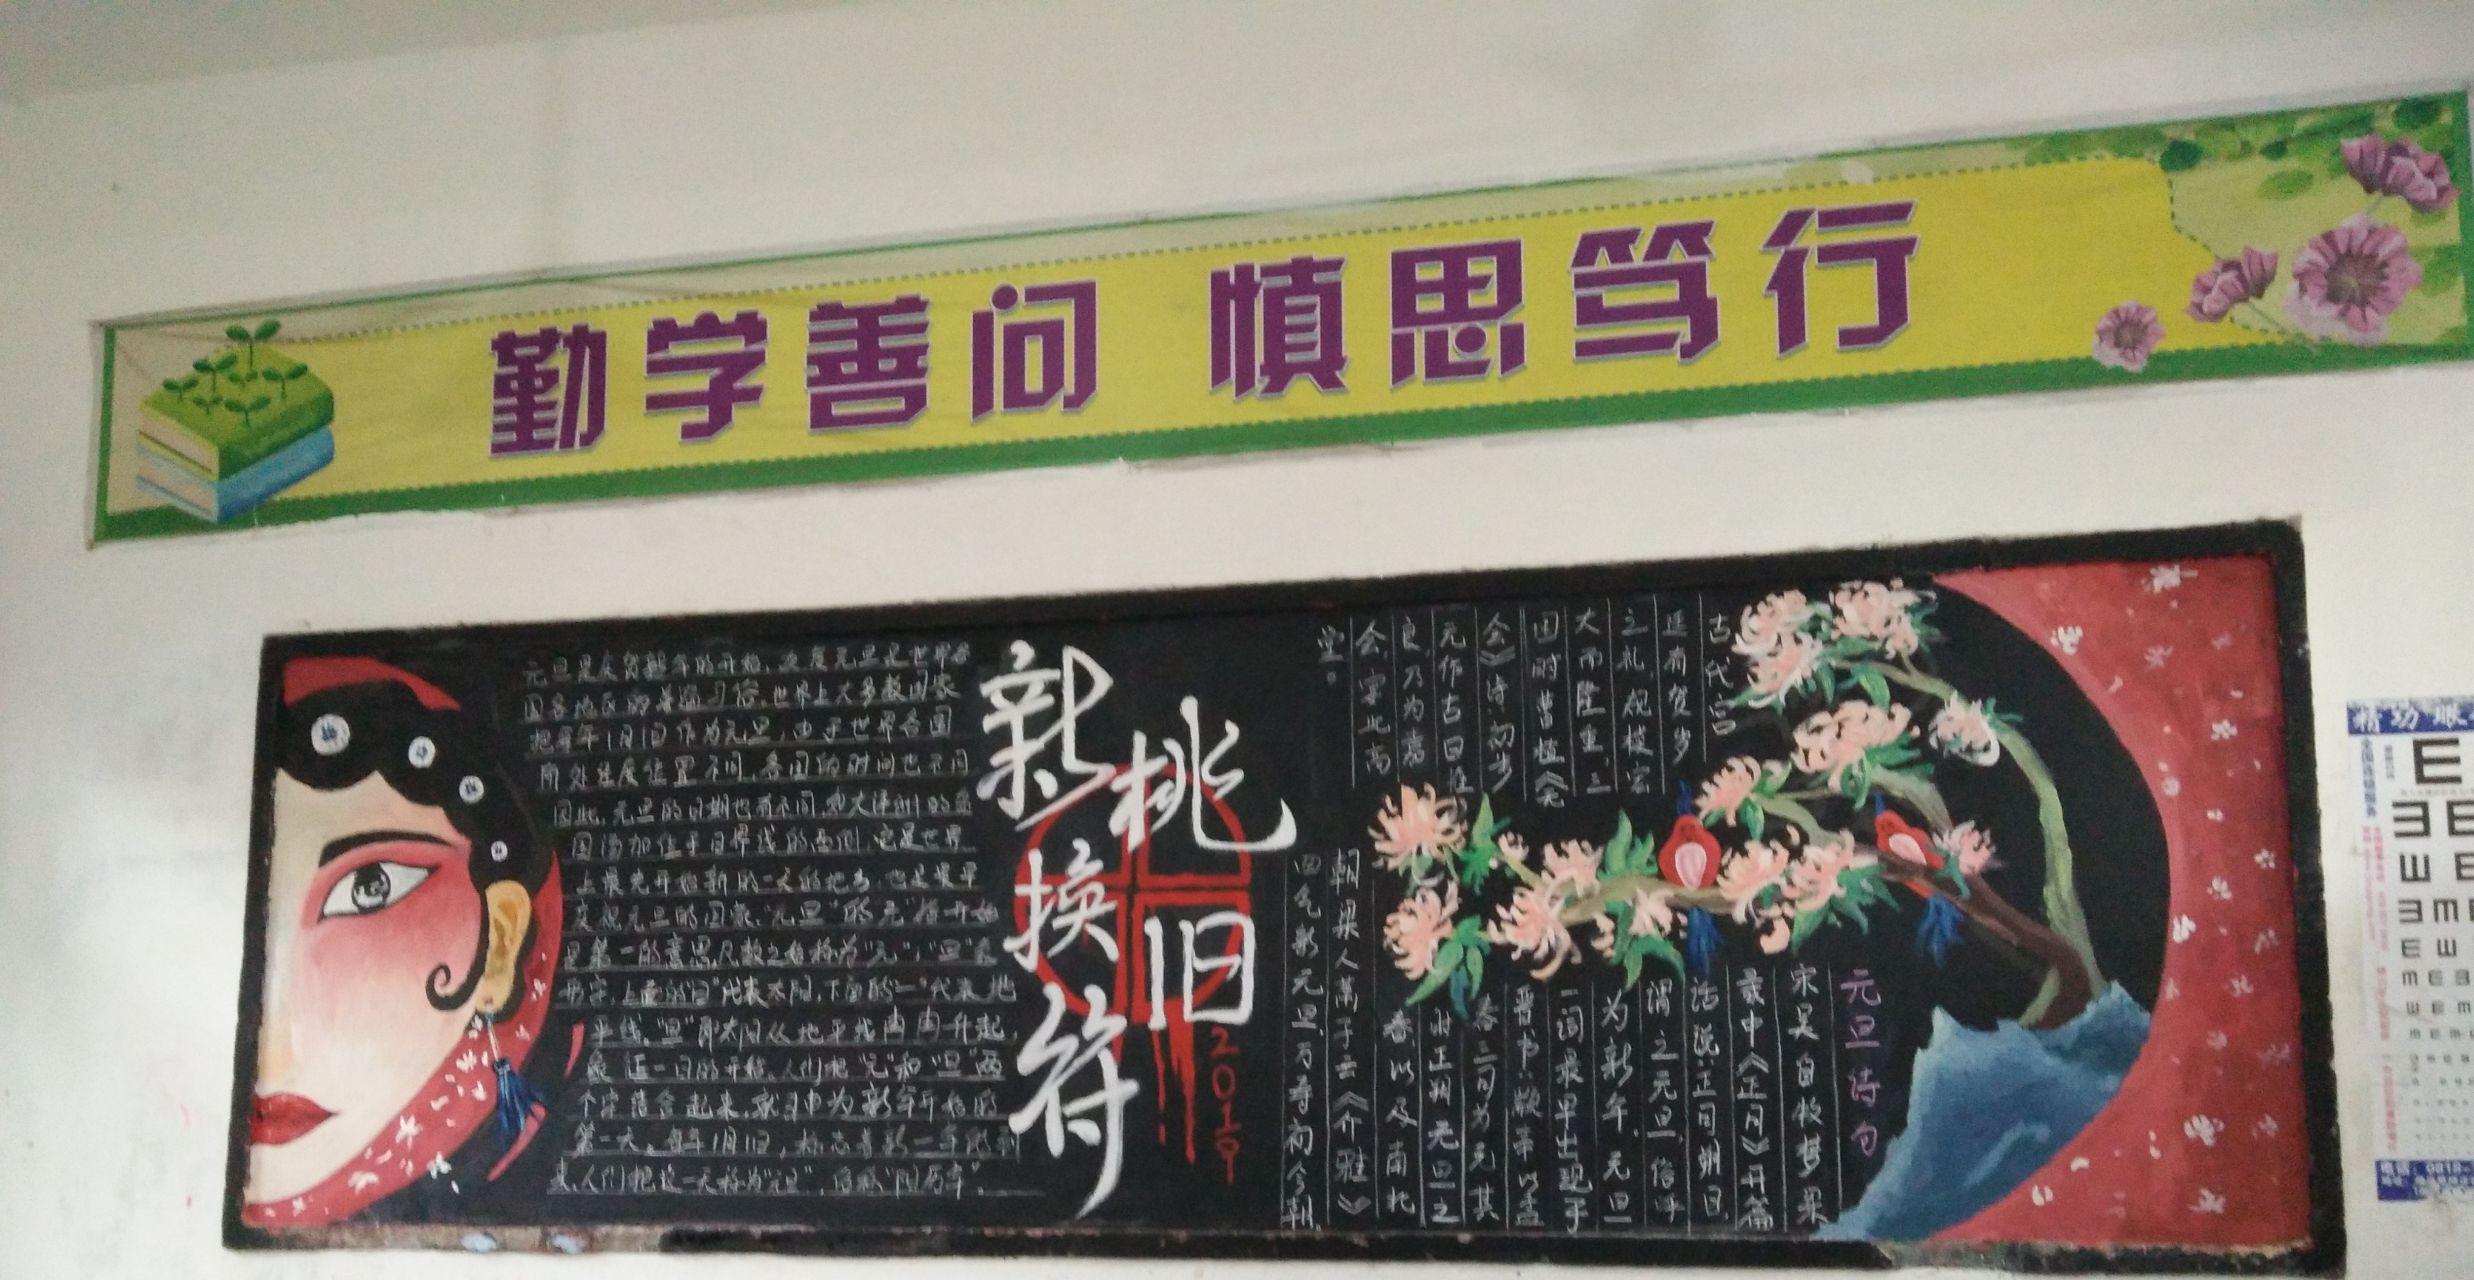 勤学善问 慎思笃行
元旦是庆贺新年的开始,欢度元旦是世界各
国各地区的普遍习俗,世界上大多数国家
把每年1月1日作为元旦,由于世界各国
所处经度位置不同,各国的时间也不同
因此,元旦的日期也有不同,
国汤加位于日界线的西侧,它是世界
上最先开始新的一天的地方,也是最早
庆祝元旦的国家."元旦"的"元"指开始
是第一的意思,凡数之始称为"元";"旦"
上面的"日"代表太阳,下面的"一"代表地
平线."旦"即太阳从地平线冉冉升起,
象征一日的开始.人们把"元"和"旦"两
个字结合起来,就引申为新年开始的
第一天。每年1月1日,标志着新一年的到
来.人们把这一天称为"元旦",俗称"阳历年"。
新桃
换旧
符
2019
古代宫
廷有贺岁
之礼,规模宏
大而隆重,三
国时曹植《元
会》诗:初步
元作古日惟
良乃为嘉
会,宴此高
堂。
元旦诗句
宋吴自牧梦粱
录中《正月》开篇
话说:正司朔日,
谓之元旦,俗呼
为新年,元旦
一词最早出现于
晋书:颛帝以孟
春三月为元其
时正朔元旦之
春以及南北
朝梁人萧子云《介雅》
四气新元旦,万寿初今朝.
E